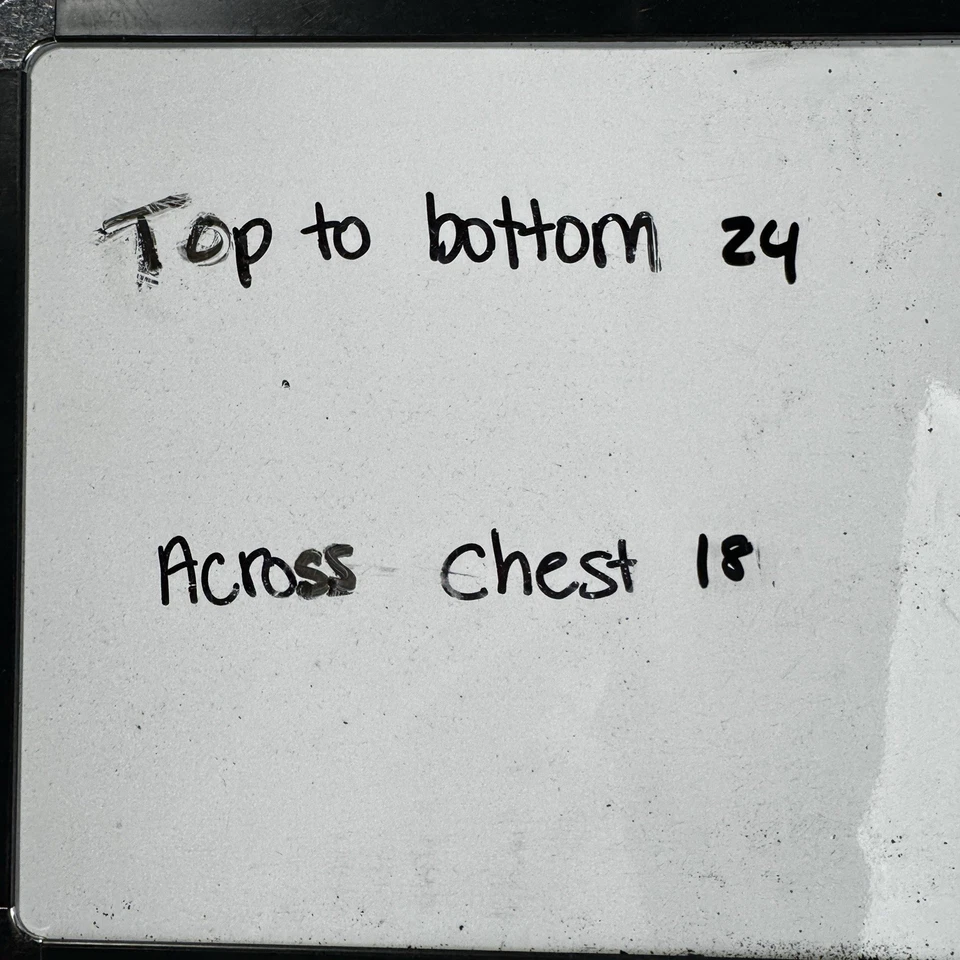 Top to bottom 24
Across chest 18